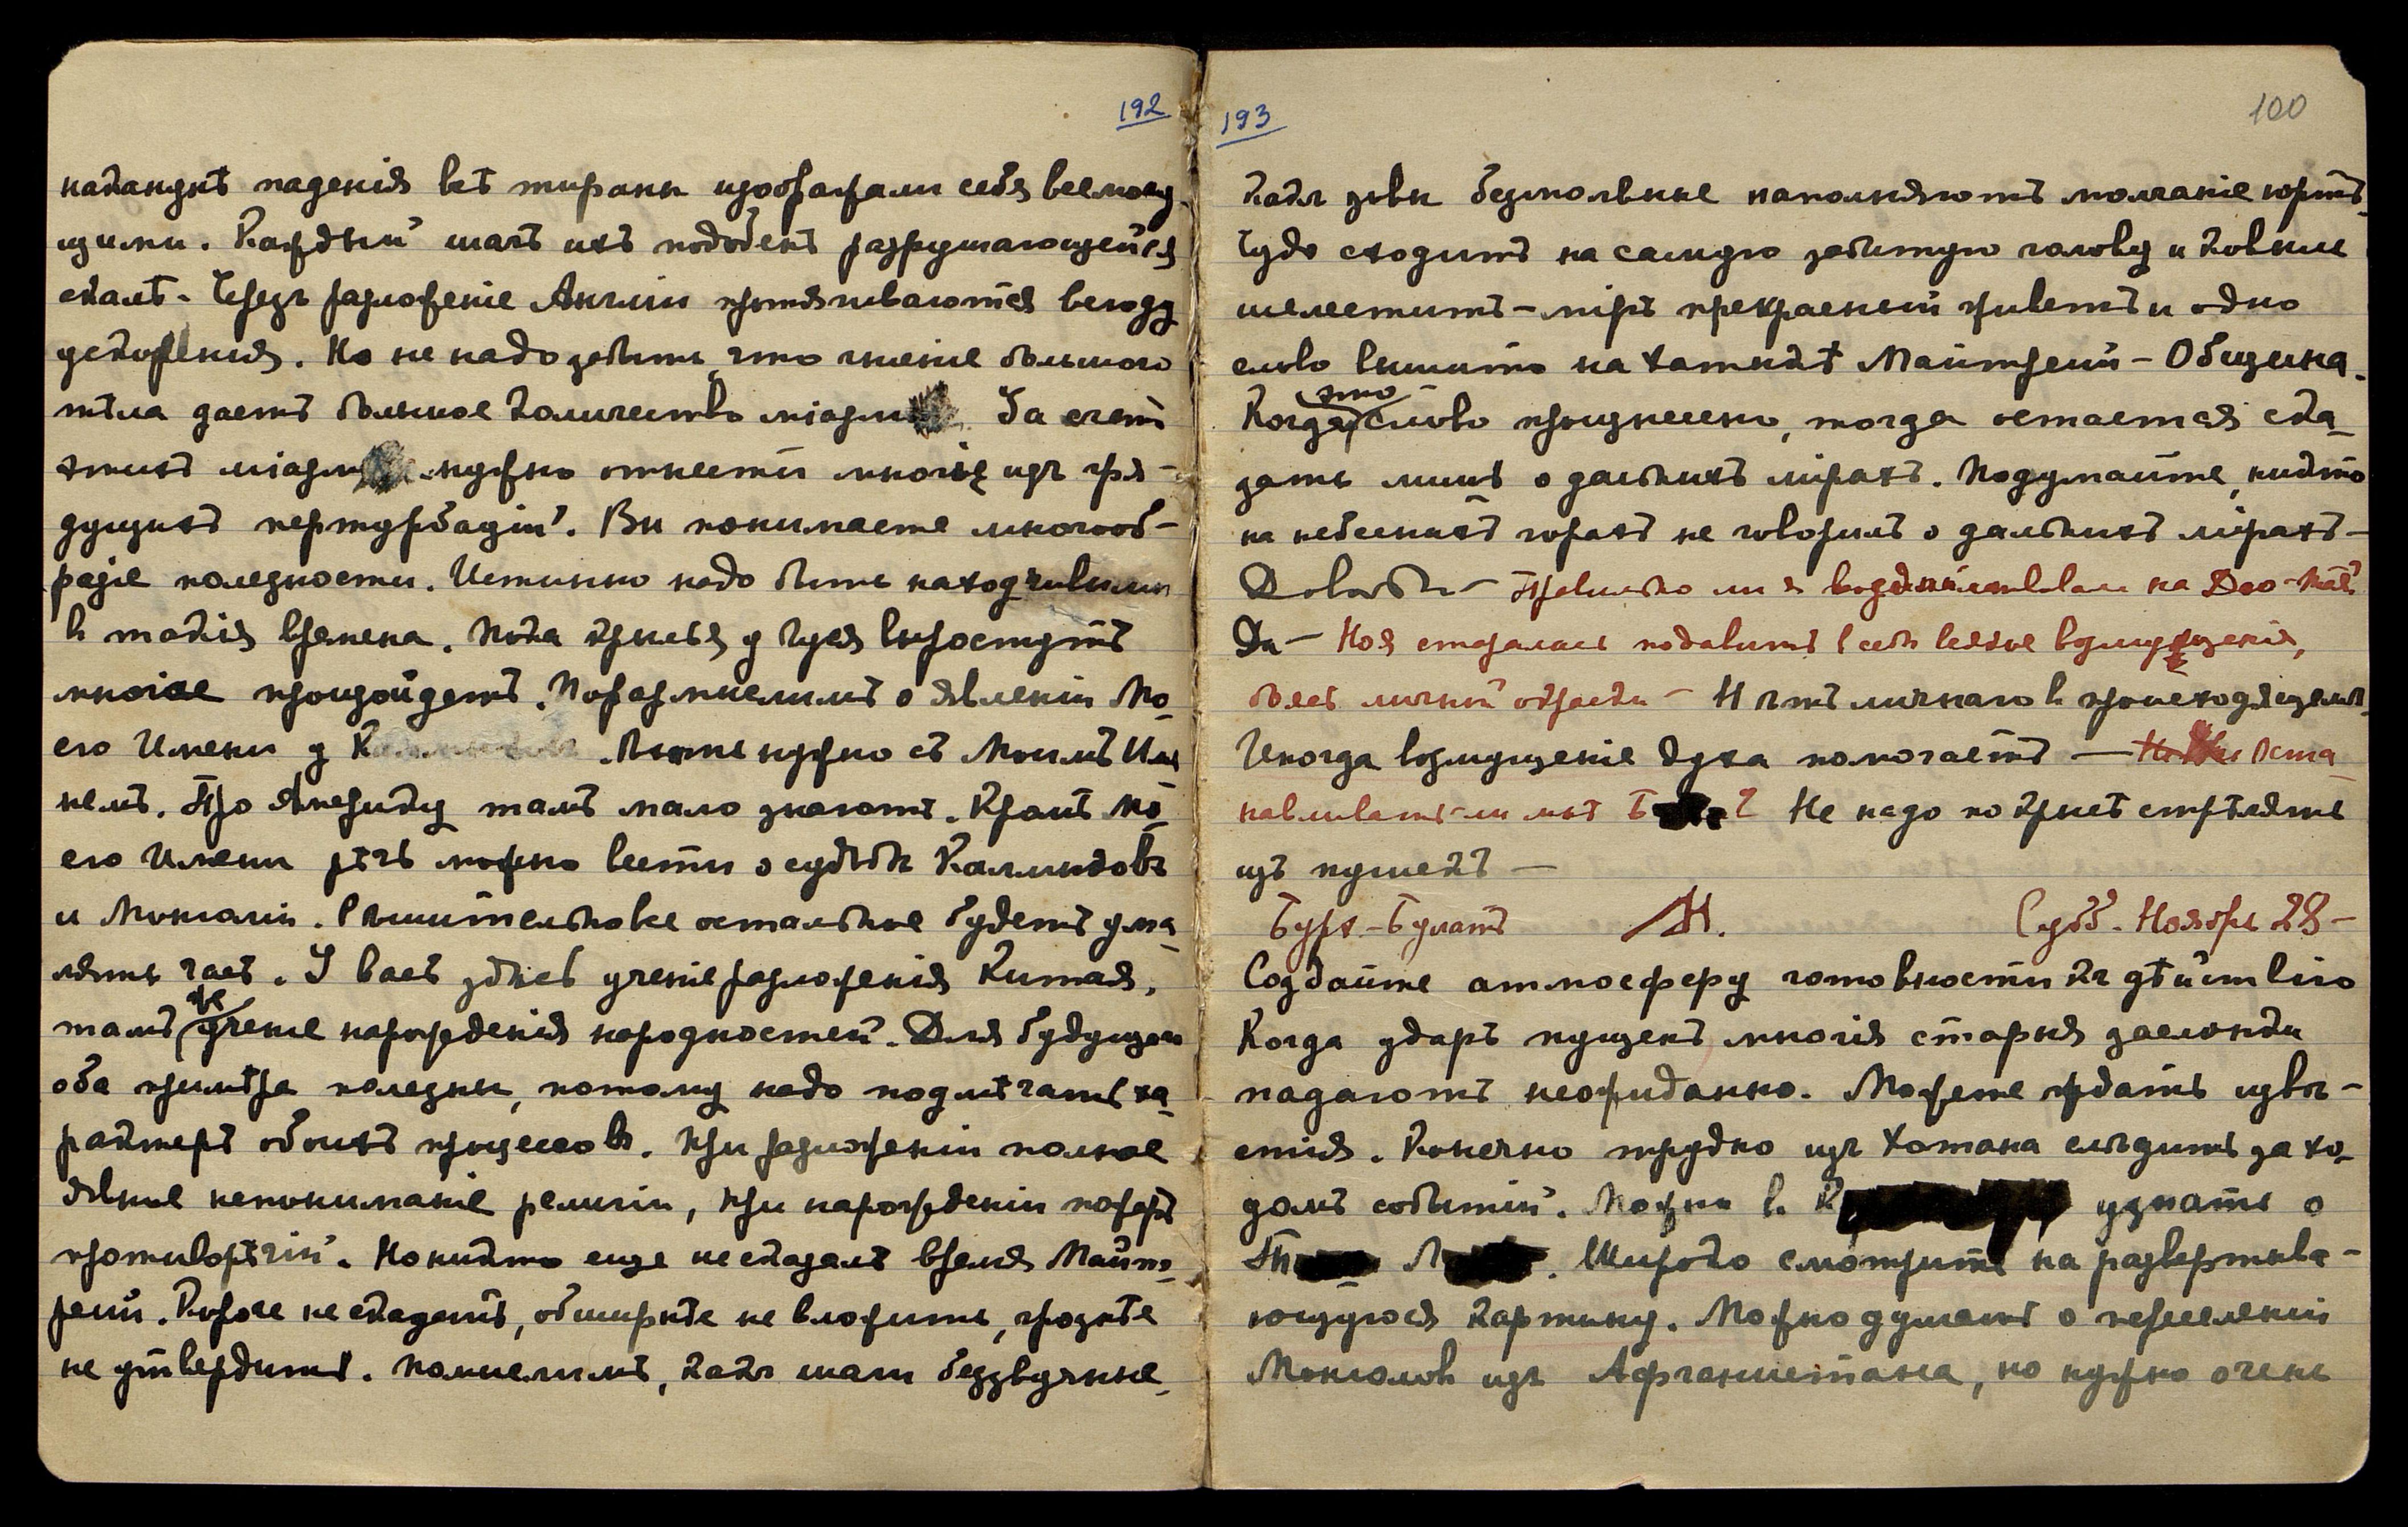 192
наканунѣ паденія всѣ тираны изображали себя всемогу-
щими. Каждый шагъ ихъ подобенъ разрушающейся
скалѣ. Черезъ разложеніе Англіи протягиваются всюду
ускоренія. Но не надо забыть, что гніеніе большого
тѣла даетъ большое количество міазм За счетъ
этихъ міазм нужно отнести многіе изъ гря-
дущихъ пертурбацій. Вы понимаете многооб-
разіе полезности. Истинно надо быть находчивыми
в такія времена. Пока крылья у Чуся выростутъ
многое произойдетъ. Поразмыслимъ о явленіи Мо-
его Имени у К Быть нужно съ Моимъ Име
немъ. Про Америку тамъ мало знаютъ. Кромѣ Мо-
его Имени рѣчь можно вести о судьбѣ Калмыковъ
и Монголіи. Внѣшительное остальное будетъ ума-
лять часъ. У васъ здѣсь ученіе разложенія Китая,
тамъ же ученіе нарожденія народностей. Для будущаго
оба примѣра полезны, потому надо подмѣчать ха-
рактеръ обоихъ процессовъ. При разложеніи полное
явное непониманіе религіи, при нарожденіи пожаръ
противорѣчій. Но никто еще не сказалъ время Майт-
рейи. Короче не сказать, обширнѣе не вложить, грознѣе
не утвердить. Помыслимъ, какъ шаги беззвучные,
193
100
какъ зовы безмолвные наполняютъ молчаніе юртъ.
Чудо сходитъ на самую забитую голову и ковыле
шелеститъ – міръ прекрасный живетъ и одно
слово вышито на хоткѣ Майтрейи – Община.
Когда это слово произнесено, тогда остается ска-
зать лишь о дальнихъ мірахъ. Подумайте, никто
на небесныхъ горахъ не говорилъ о дальнихъ мірахъ –
Довольно – Правильно ли я воздѣйствовала на Дао-Тай?
Да – Но я старалась подавить в себѣ всякое возмущенія,
боясь личной окраски – Нѣтъ личнаго в происходящемъ.
Иногда возмущеніе духа помогаетъ — Оста-
навливать-ли мнѣ Б ? Не надо по крысѣ стрѣлять
изъ пушекъ —
Бурх.-Булатъ М. Субб. Ноябрь 28 –
Создайте атмосферу готовности къ дѣйствію
Когда ударъ пущенъ многія старыя заслонки
падаютъ неожиданно. Можете ждать извѣ-
стія. Конечно трудно изъ Хотана слѣдить за хо-
домъ событій. Можно в К узнать о
Т Л . Широко смотрите на развертыва-
ющуюся картину. Можно думать о переселеніи
Монголовъ изъ Афганистана, но нужно очень